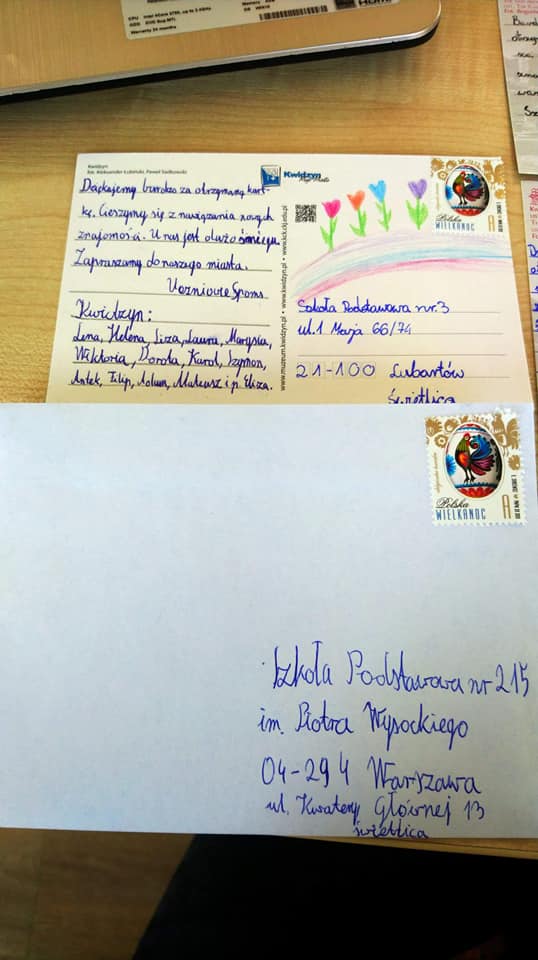 Warranty 24 months
Kwidzyn
fot. Aleksander Łubiński, Paweł Sadkowski
Kwidzyn
Dziękujemy bardzo za otrzymaną kart-
kę. Cieszymy się z nawiązania nowych
znajomości. U nas jest dużo śniegu.
Zapraszamy do naszego miasta.
Uczniowie
Kwidzyn:
Lena, Helena, Liza, Laura, Marysia,
Wiktoria, Dorota, Karol, Szymon,
Antek, Filip, Adam, Mateusz i p. Eliza.
www.muzeum.kwidzyn.pl • www.kwidzyn.pl • www.kck.ckj.edu.pl
Polska
WIELKANOC A
Szkoła Podstawowa nr 3
ul. 1 Maja 66/74
21-100 Lubartów
świetlica
Polska
WIELKANOC A
Szkoła Podstawowa nr 215
im. Piotra Wysockiego
04-294 Warszawa
ul. Kwatery Głównej 13
świetlica